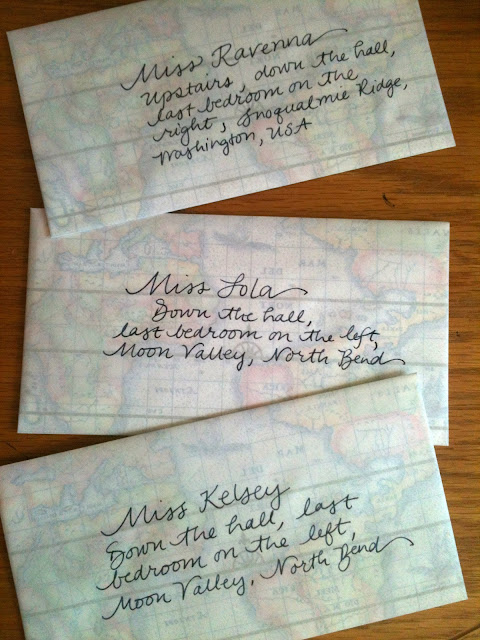 Miss Ravenna
Upstairs, down the hall,
last bedroom on the
right, Snoqualmie Ridge,
Washington, USA
Miss Lola
Down the hall,
last bedroom on the left,
Moon Valley, North Bend
Miss Kelsey
Down the hall, last
bedroom on the left,
Moon Valley, North Bend